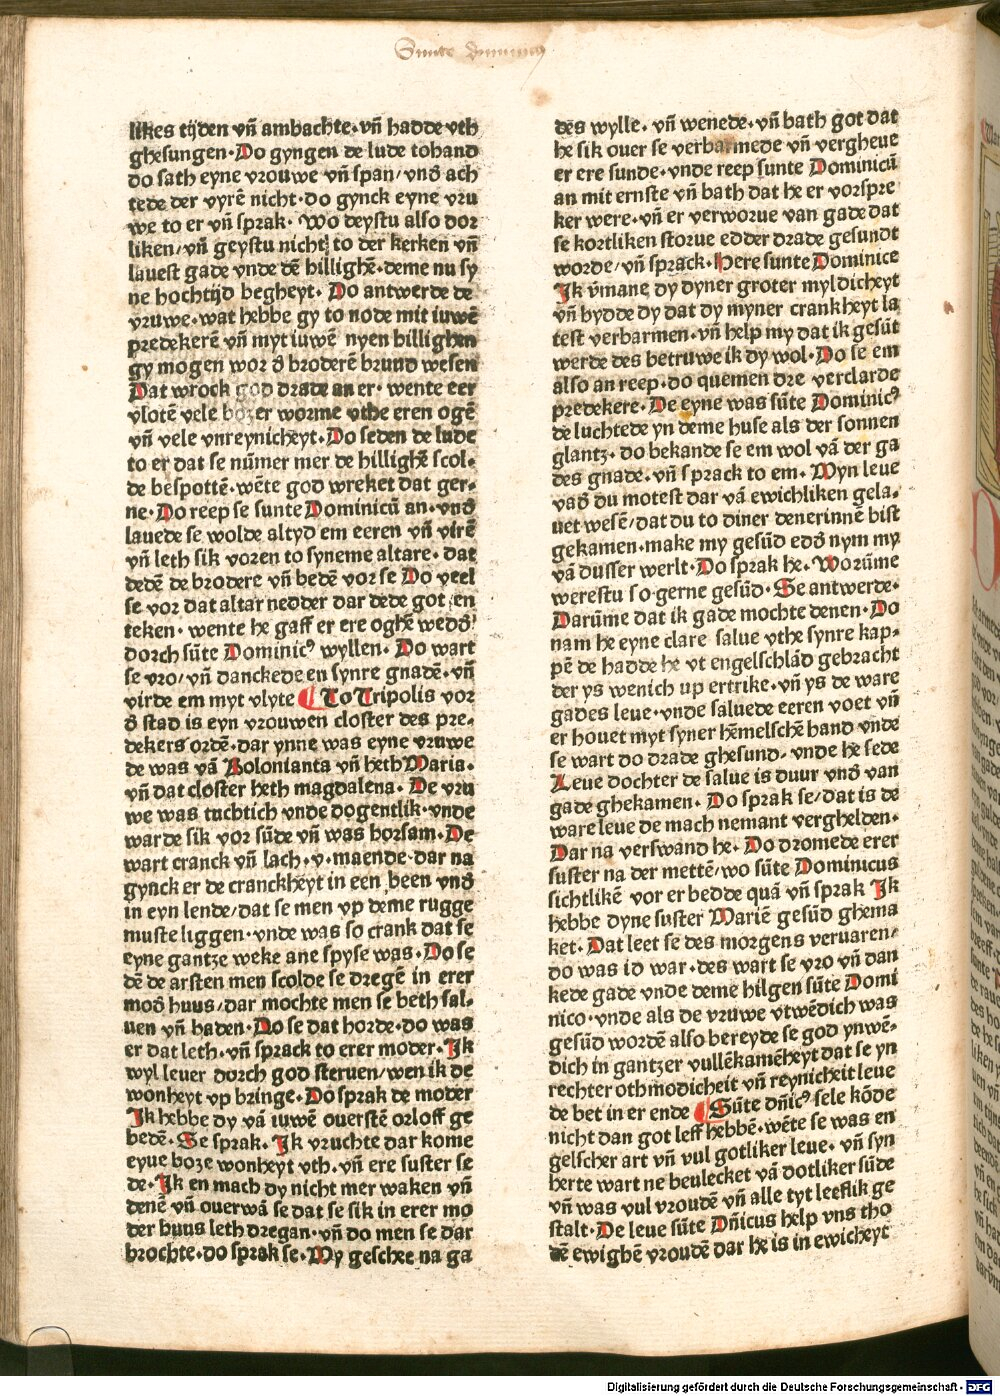 Sunte Dominicus
likes tijden vñ ambachte · vñ hadde vth
ghesungen · Do gyngen de lude tohand
do sath eyne vrouwe vñ span / vnd̄ ach
tede der vyrē nicht · do gynck eyne vru
we to er vñ sprak · Wo deystu also dor
liken / vñ geystu nicht to der kerken vñ
lauest gade vnde dē hillighē · deme nu sy
ne hochtijd begheyt · Do antwerde de
vruwe · wat hebbe gy to node mit iuwē
predekerē vñ myt iuwē nyen billighen
gy mogen wor d̄ broderē brund wesen
Dat wrock god drade an er · wente eer
vlotē vele bozer worme vthe eren ogē
vñ vele vnreynicheyt · Do seden de lude
to er dat se nūmer mer de hillighē scol-
de bespottē · wēte god wreket dat ger-
ne · Do reep se sunte Dominicū an · vnd̄
lauede se wolde altyd em eeren vñ virē
vñ leth sik voren to syneme altare · dat
dedē de brodere vñ bedē vor se Do veel
se vor dat altar nedder dar dede got en
teken · wente he gaff er ere oghē wedd̄
dorch sūte Dominicꝰ wyllen · Do wart
se vro / vñ danckede en synre gnadē · vñ
virde em myt vlyte ¶ To Tripolis vor
d̄ stad is eyn vrouwen closter des pre-
dekers ordē · dar ynne was eyne vruwe
de was vā Bolonianta vñ heth Maria ·
vñ dat closter heth magdalena · De vru
we was tuchtich vnde dogentlik · vnde
warde sik vor sūde vñ was horsam · De
wart cranck vñ lach · v · maende · dar na
gynck er de cranckheyt in een been vnd̄
in eyn lende / dat se men vp deme rugge
muste liggen · vnde was so crank dat se
eyne gantze weke ane spyse was · Do se
dē de arsten men scolde se dregē in erer
mod̄ huus / dar mochte men se beth sal-
uen vñ baden · Do se dat horde · do was
er dat leth · vñ sprack to erer moder · Ik
wyl leuer dorch god steruen / wen ik de
wonheyt vp bringe · Do sprak de moder
Ik hebbe dy vā iuwē ouerstē orloff ge
bedē · Se sprak · Ik vruchte dar kome
eyue boze wonheyt vth · vñ ere suster se
de · Ik en mach dy nicht mer waken vñ
denē vñ ouerwā se dat se sik in erer mo
der huus leth dregan · vñ do men se dar
brochte · do sprak se · My geschee na ga
des wylle · vñ wenede · vñ bath got dat
he sik ouer se verbarmede vñ vergheue
er ere sunde · vnde reep sunte Dominicū
an mit ernste vñ bath dat he er vorspre
ker were · vñ er verworue van gade dat
se kortliken storue edder drade gesundt
worde / vñ sprack · Here sunte Dominice
Ik v̄mane dy dyner groter myldicheyt
vñ bydde dy dat dy myner crankheyt la
test verbarmen · vñ help my dat ik gesūt
werde des betruwe ik dy wol · Do se em
also an reep · do quemen dre verclarde
predekere · De eyne was sūte Dominicꝰ
de luchtede yn deme huse als der sonnen
glantz · do bekande se em wol vā der ga
des gnade · vñ sprack to em · Myn leue
vad̄ du motest dar vā ewichliken gela-
uet wesē / dat du to diner denerinnē bist
gekamen · make my gesūd edd̄ nym my
vā dusser werlt · Do sprak he · Worūme
werestu so gerne gesūd · Se antwerde ·
Darūme dat ik gade mochte denen · Do
nam he eyne clare salue vthe synre kap-
pē de hadde he vt engelschlād gebracht
der ys wenich up ertrike · vñ ys de ware
gades leue · vnde saluede eeren voet vñ
er houet myt syner hēmelschē hand vnde
se wart do drade ghesund · vnde he sede
Leue dochter de salue is duur vnd̄ van
gade ghekamen · Do sprak se / dat is de
ware leue de mach nemant verghelden ·
Dar na verswand he · Do dromede erer
suster na der mettē / wo sūte Dominicus
sichtlikē vor er bedde quā vñ sprak Ik
hebbe dyne suster Mariē gesūd ghema
ket · Dat leet se des morgens veruaren /
do was id war · des wart se vro vñ dan
kede gade vnde deme hilgen sūte Domi
nico · vnde als de vruwe vtwēdich was
gesūd wordē also bereyde se god ynwē-
dich in gantzer vullēkamēheyt dat se yn
rechter othmodicheit vñ reynicheit leue
de bet in er ende ¶ Sūte dn̄icꝰ sele kōde
nicht dan got leff hebbē · wēte se was en
gelscher art vñ vul gotliker leue · vñ syn
herte wart ne beulecket vā dotliker sūde
vñ was vul vroudē vñ alle tyt leeflik ge
stalt · De leue sūte Dn̄icus help vns tho
dē ewighē vroudē dar he is in ewicheyt
Digitalisierung gefördert durch die Deutsche Forschungsgemeinschaft - DFG